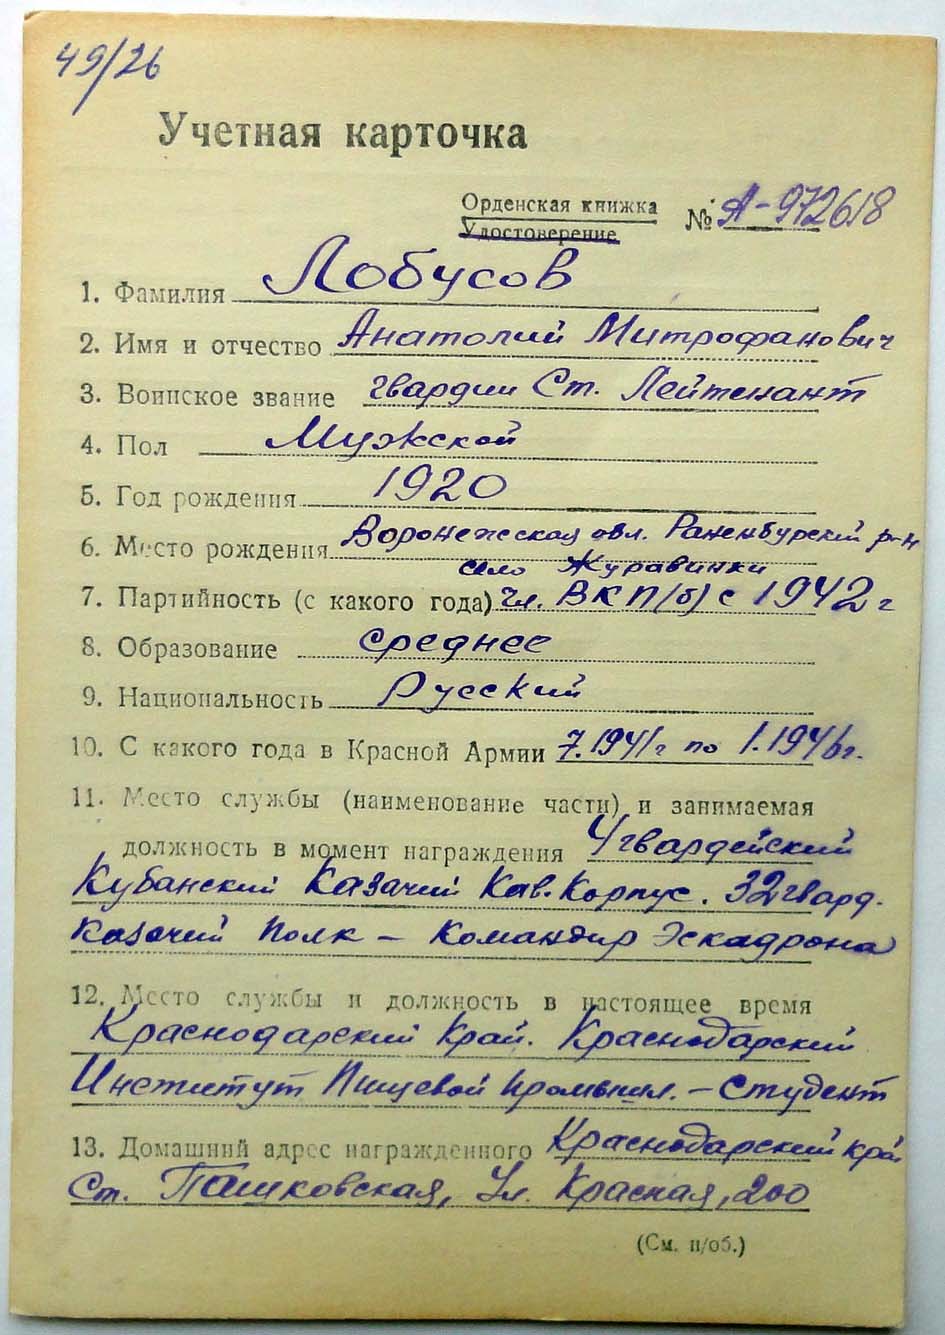 49/26
Учетная карточка
Орденская книжка
Удостоверение
№ А-972618
1. Фамилия Лобусов
2. Имя и отчество Анатолий Митрофанович
3. Воинское звание гвардии Ст. Лейтенант
4. Пол Мужской
5. Год рождения 1920
6. Место рождения Воронежская обл. Раненбурский р-н
село Журавинки
7. Партийность (с какого года) чл. ВКП(б) с 1942 г
8. Образование среднее
9. Национальность Русский
10. С какого года в Красной Армии 7.1941г по 1.1946г.
11. Место службы (наименование части) и занимаемая
должность в момент награждения 4 гвардейский
Кубанский Казачий Кав. Корпус. 32 гвард.
Казачий Полк – Командир Эскадрона
12. Место службы и должность в настоящее время
Краснодарский Край. Краснодарский
Институт Пищевой промышл. – Студент
13. Домашний адрес награжденного Краснодарский край
Ст. Пашковская, Ул. Красная, 200
(См. н/об.)